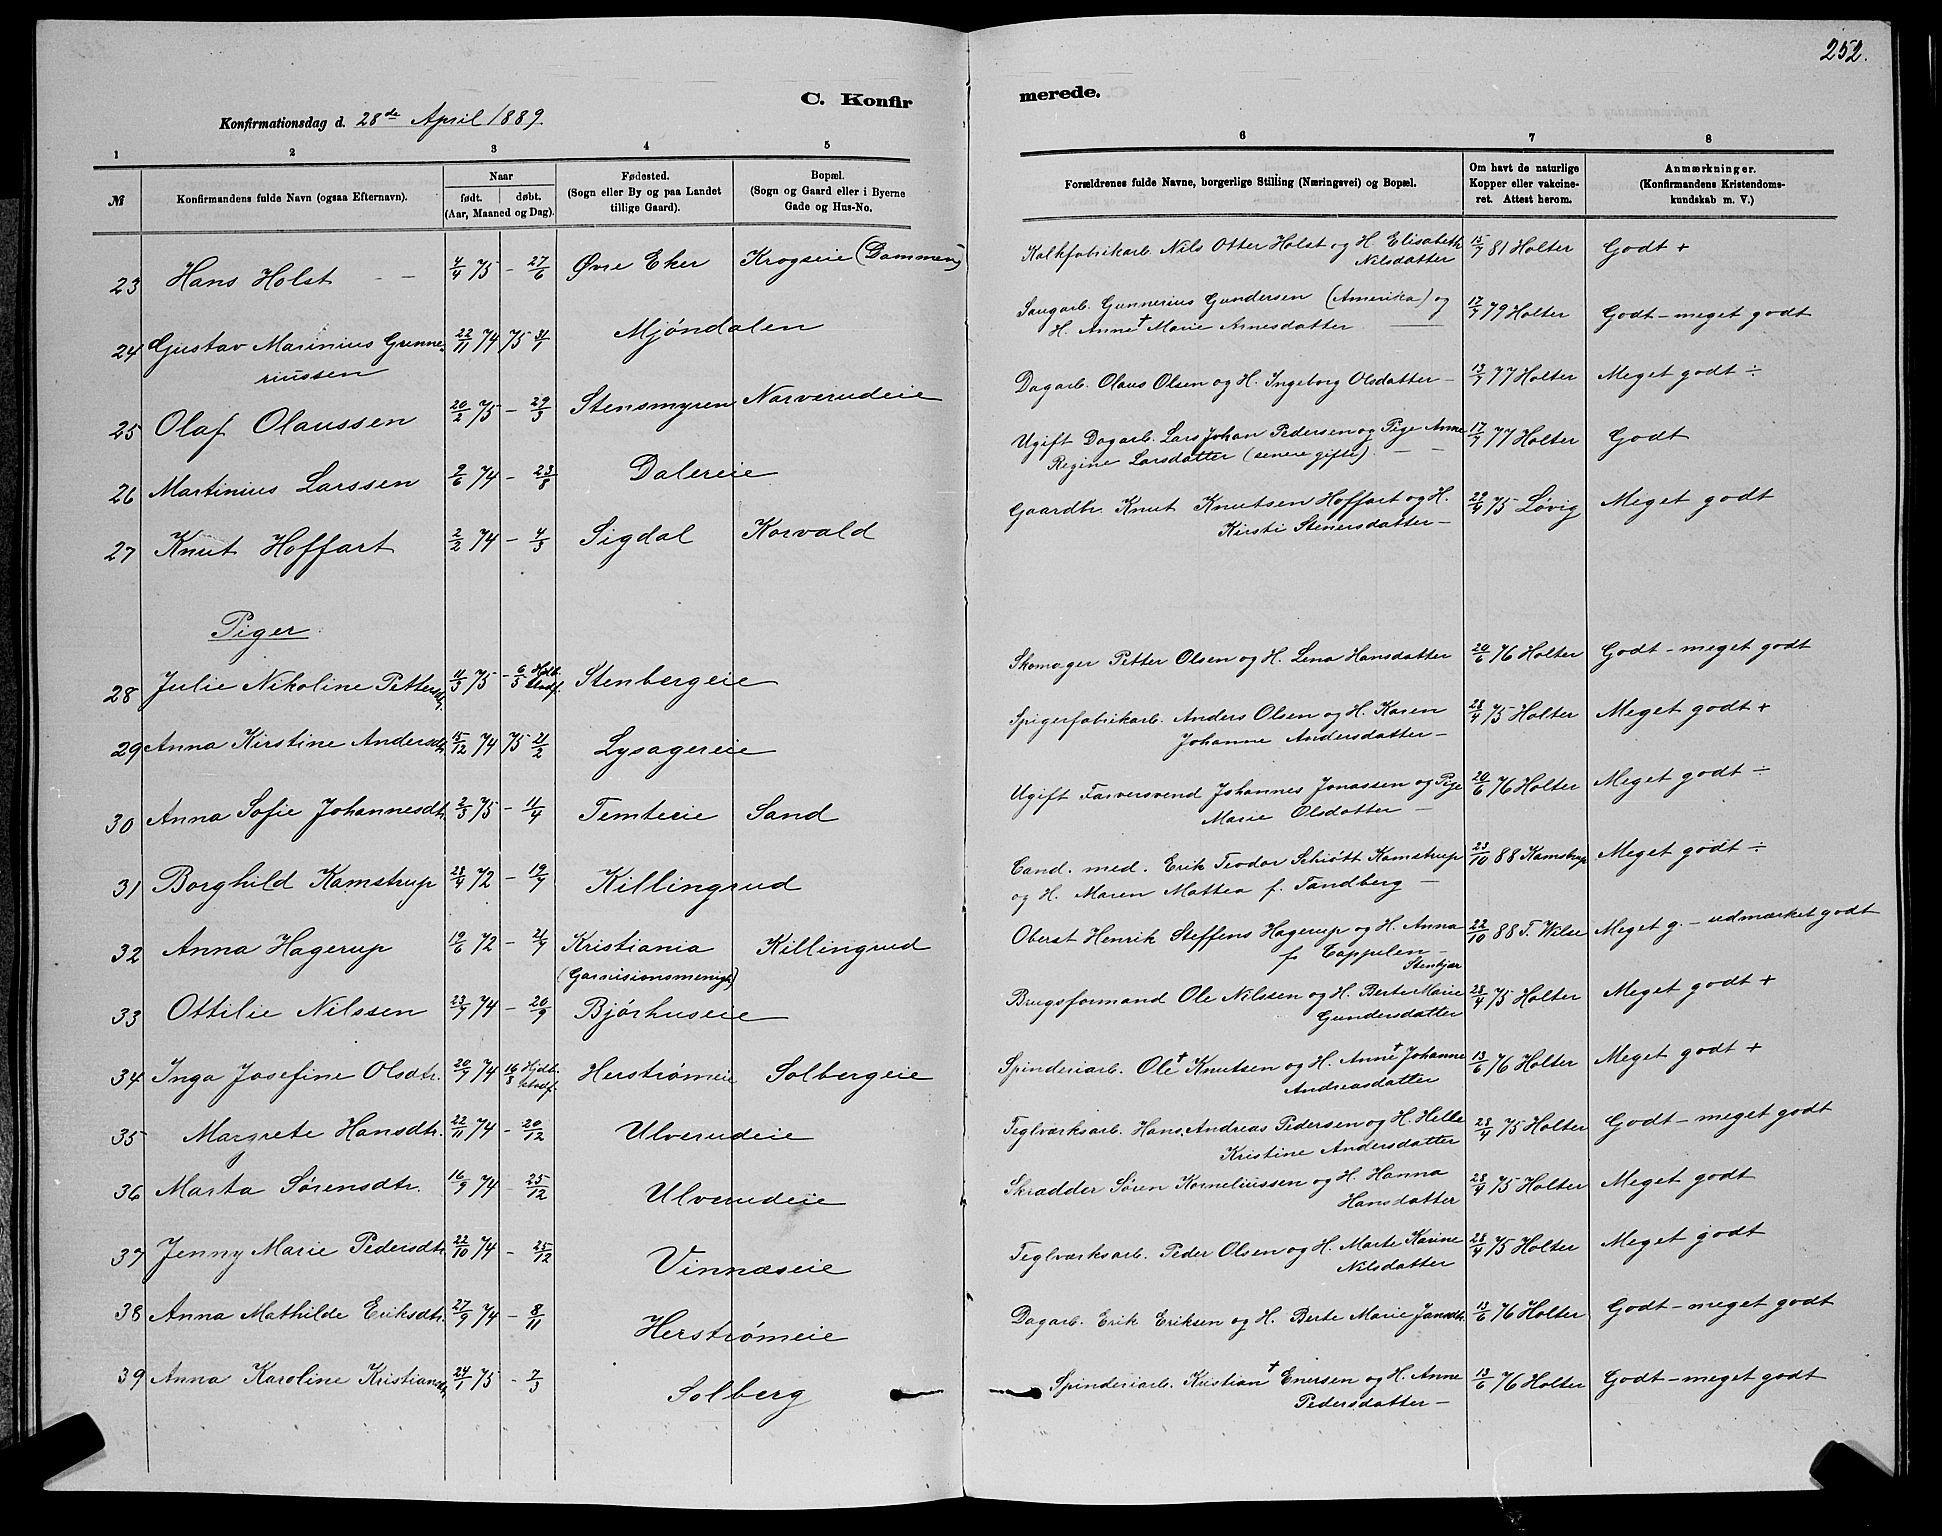 252.
C. Konfirmerede.
Konfirmationsdag d. 28de April 1889.
1 2 3 4 5 6 7 8
№ | Konfirmandens fulde Navn (ogsaa Efternavn). | Naar født. døbt. (Aar, Maaned og Dag). | Fødested. (Sogn eller By og paa Landet tillige Gaard). | Bopæl. (Sogn og Gaard eller i Byerne Gade og Hus-No. | Forældrenes fulde Navne, borgerlige Stilling (Næringsvei) og Bopæl. | Om havt de naturlige Kopper eller vakcineret. Attest herom. | Anmærkninger. (Konfirmandens Kristendomskundskab m. V.)
23 Hans Holst — 4/4 75 - 27/6 Øvre Eker Krogseie (Dammen) Kalkfabrikarb. Nils Otter Holst og H. Elisabeth Nilsdatter 15/7 81 Holter Godt +
24 Gustav Marinius Gunneriussen 22/11 74 75 31/1 Mjøndalen Saugarb. Gunnerius Gundersen (Amerika) og H. Anne † Marie Arnesdatter — 17/7 79 Holter Godt - meget godt
25 Olaf Olaussen 20/2 75 - 29/3 Stensmyren Narverudeie Dagarb. Olaus Olsen og H. Ingeborg Olsdatter - 13/7 77 Holter Meget godt ÷
26 Martinius Larssen 2/6 74 - 23/8 Dalereie Ugift Dagarb. Lars Johan Pedersen og Pige Anne Regine Larsdatter (senere gifte). — 17/7 77 Holter Godt
27 Knut Hoffart 2/2 74 - 4/3 Sigdal Korvald Gaardbr. Knut Knutsen Hoffart og H. Kirsti Stenersdatter - 29/4 75 Løvig Meget godt
Piger.
28 Julie Nikoline Pettersdtr. 11/3 75 - 6/5 Stenbergeie Skomager Petter Olsen og H. Lena Hansdatter 20/6 76 Holter Godt - meget godt
29 Anna Kirstine Andersdtr. 15/12 74 75 21/2 Lysagereie Spigerfabrikarb. Anders Olsen og H. Karen Johanne Andersdatter - 28/4 75 Holter Meget godt +
30 Anna Sofie Johannesdtr. 2/3 75 - 11/4 Temteeie Sand Ugift Farversvend Johannes Jonassen og Pige Marie Olsdatter - 20/6 76 Holter Meget godt ÷
31 Borghild Kamstrup 28/4 72 - 19/7 Killingrud Cand. med. Erik Teodor Schiøtt Kamstrup og H. Maren Mattea f. Tandberg - 23/10 88 Kamstrup Meget godt ÷
32 Anna Hagerup 19/6 72 - 21/9 Kristiania (Garnisionsmenigh) Killingrud Oberst Henrik Steffens Hagerup og H. Anna f. Cappelen - Stenkjær 22/10 88 T. Wilse Meget g. - udmærket godt
33 Ottilie Nilssen 23/7 74 - 20/9 Bjørhuseie Brugsformand Ole Nilssen og H. Berte Marie Gundersdatter 28/4 75 Holter Meget godt +
34 Inga Josefine Olsdtr. 20/7 74 16/8 Herstrømeie Solbergeie Spinderiarb. Ole † Knutsen og H. Anne † Johanne Andreasdatter 13/6 76 Holter Meget godt +
35 Margrete Hansdtr. 22/11 74 - 20/12 Ulverudeie Teglværksarb. Hans Andreas Pedersen og H. Helle Kristine Andersdatter 28/4 75 Holter Godt - meget godt
36 Marta Sørensdtr. 16/9 74 - 25/12 Ulverudeie Skrædder Søren Korneliussen og H. Hanna Hansdatter 28/4 75 Holter Meget godt
37 Jenny Marie Pedersdtr. 22/10 74 - 25/12 Vinnæseie Teglværksarb. Peder Olsen og H. Marte Karine Nilsdatter 28/4 75 Holter Meget godt
38 Anna Mathilde Eriksdtr. 27/9 74 - 8/11 Herstrømeie Dagarb. Erik Eriksen og H. Berte Marie Jansdtr. 13/6 76 Holter Godt - meget godt
39 Anna Karoline Kristiansdtr. 24/1 75 - 7/3 Solberg Spinderiarb. Kristian † Enersen og H. Anne Pedersdatter - 13/6 76 Holter Godt - meget godt